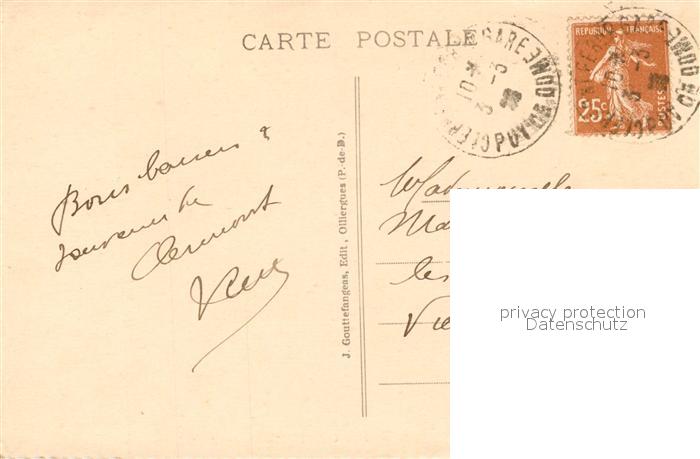 CARTE POSTALE
GARE
PUY-DE-DOME
10 *
3 - 3
REPUBLIQUE FRANÇAISE
25c
POSTES
PUY-DE-DOME
10 *
3 - 3
Bons baisers &
souvenirs de
Clermont
J. Gouttefangeas, Edit, Olliergues (P.-de-D.)
Mademoiselle
Ma
les
Vi
privacy protection
Datenschutz